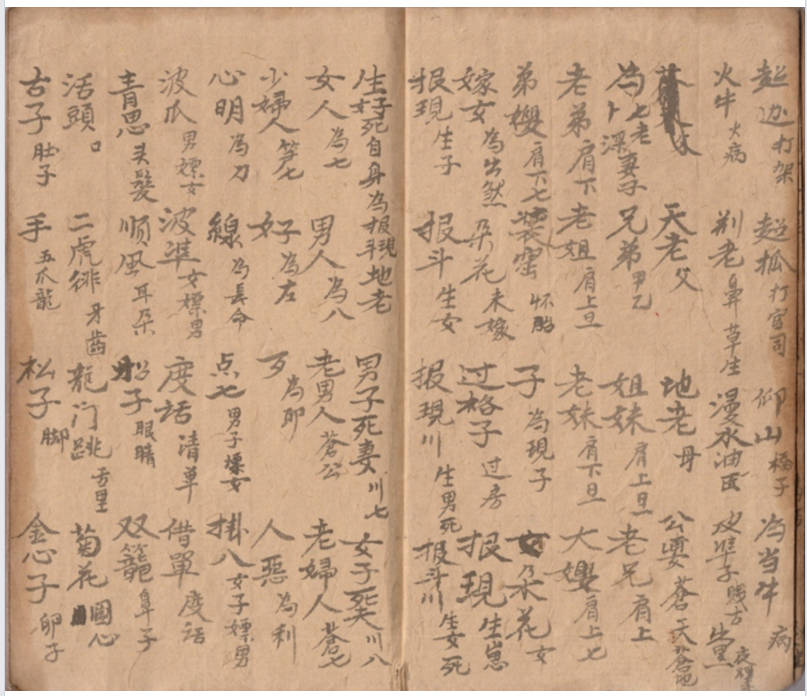 超边 打架 超孤 打官司 仰山 橋子 为当牛 病
火牛 火病 荆老 鼻草生 漫水油 皮準子 生黑
天老 父 地老 母 公婆 蒼天 蒼地
七老 深妻子 兄弟 甲乙 姐妹 肩上旦 老兄 肩上
老弟 肩下 老姐 肩上旦 老妹 肩下旦 大嫂 肩上七
弟嫂 肩下七 裝窑 怀胎 子 为現子 女 乃朵花 女
嫁女 為出然 朵花 未嫁 过格子 过房 报現 生崽
报現 生子 报斗 生女 报現川 生男死 报斗川 生女死
生子 女死自身為报現 报斗 地老 男子死妻 川七 女子死夫 川八
女人 為七 男人 為八 老男人 蒼公 老婦人 蒼七
少婦人 笋七 好 為左 歹 為卯 人惡 為利
心明 為刀 線 為長命 点七 男子嫖女 掛八 女子嫖男
波瓜 男嫖女 波準 女嫖男 度话 清单 借單 度話
青思 头髮 順风 耳朵 船子 眼睛 双籠 鼻子
活頭 口 二虎徘 牙齒 龍门跳 舌里 菊花 圆心
古子 肚子 手 五爪龍 松子 脚 金心子 卵子